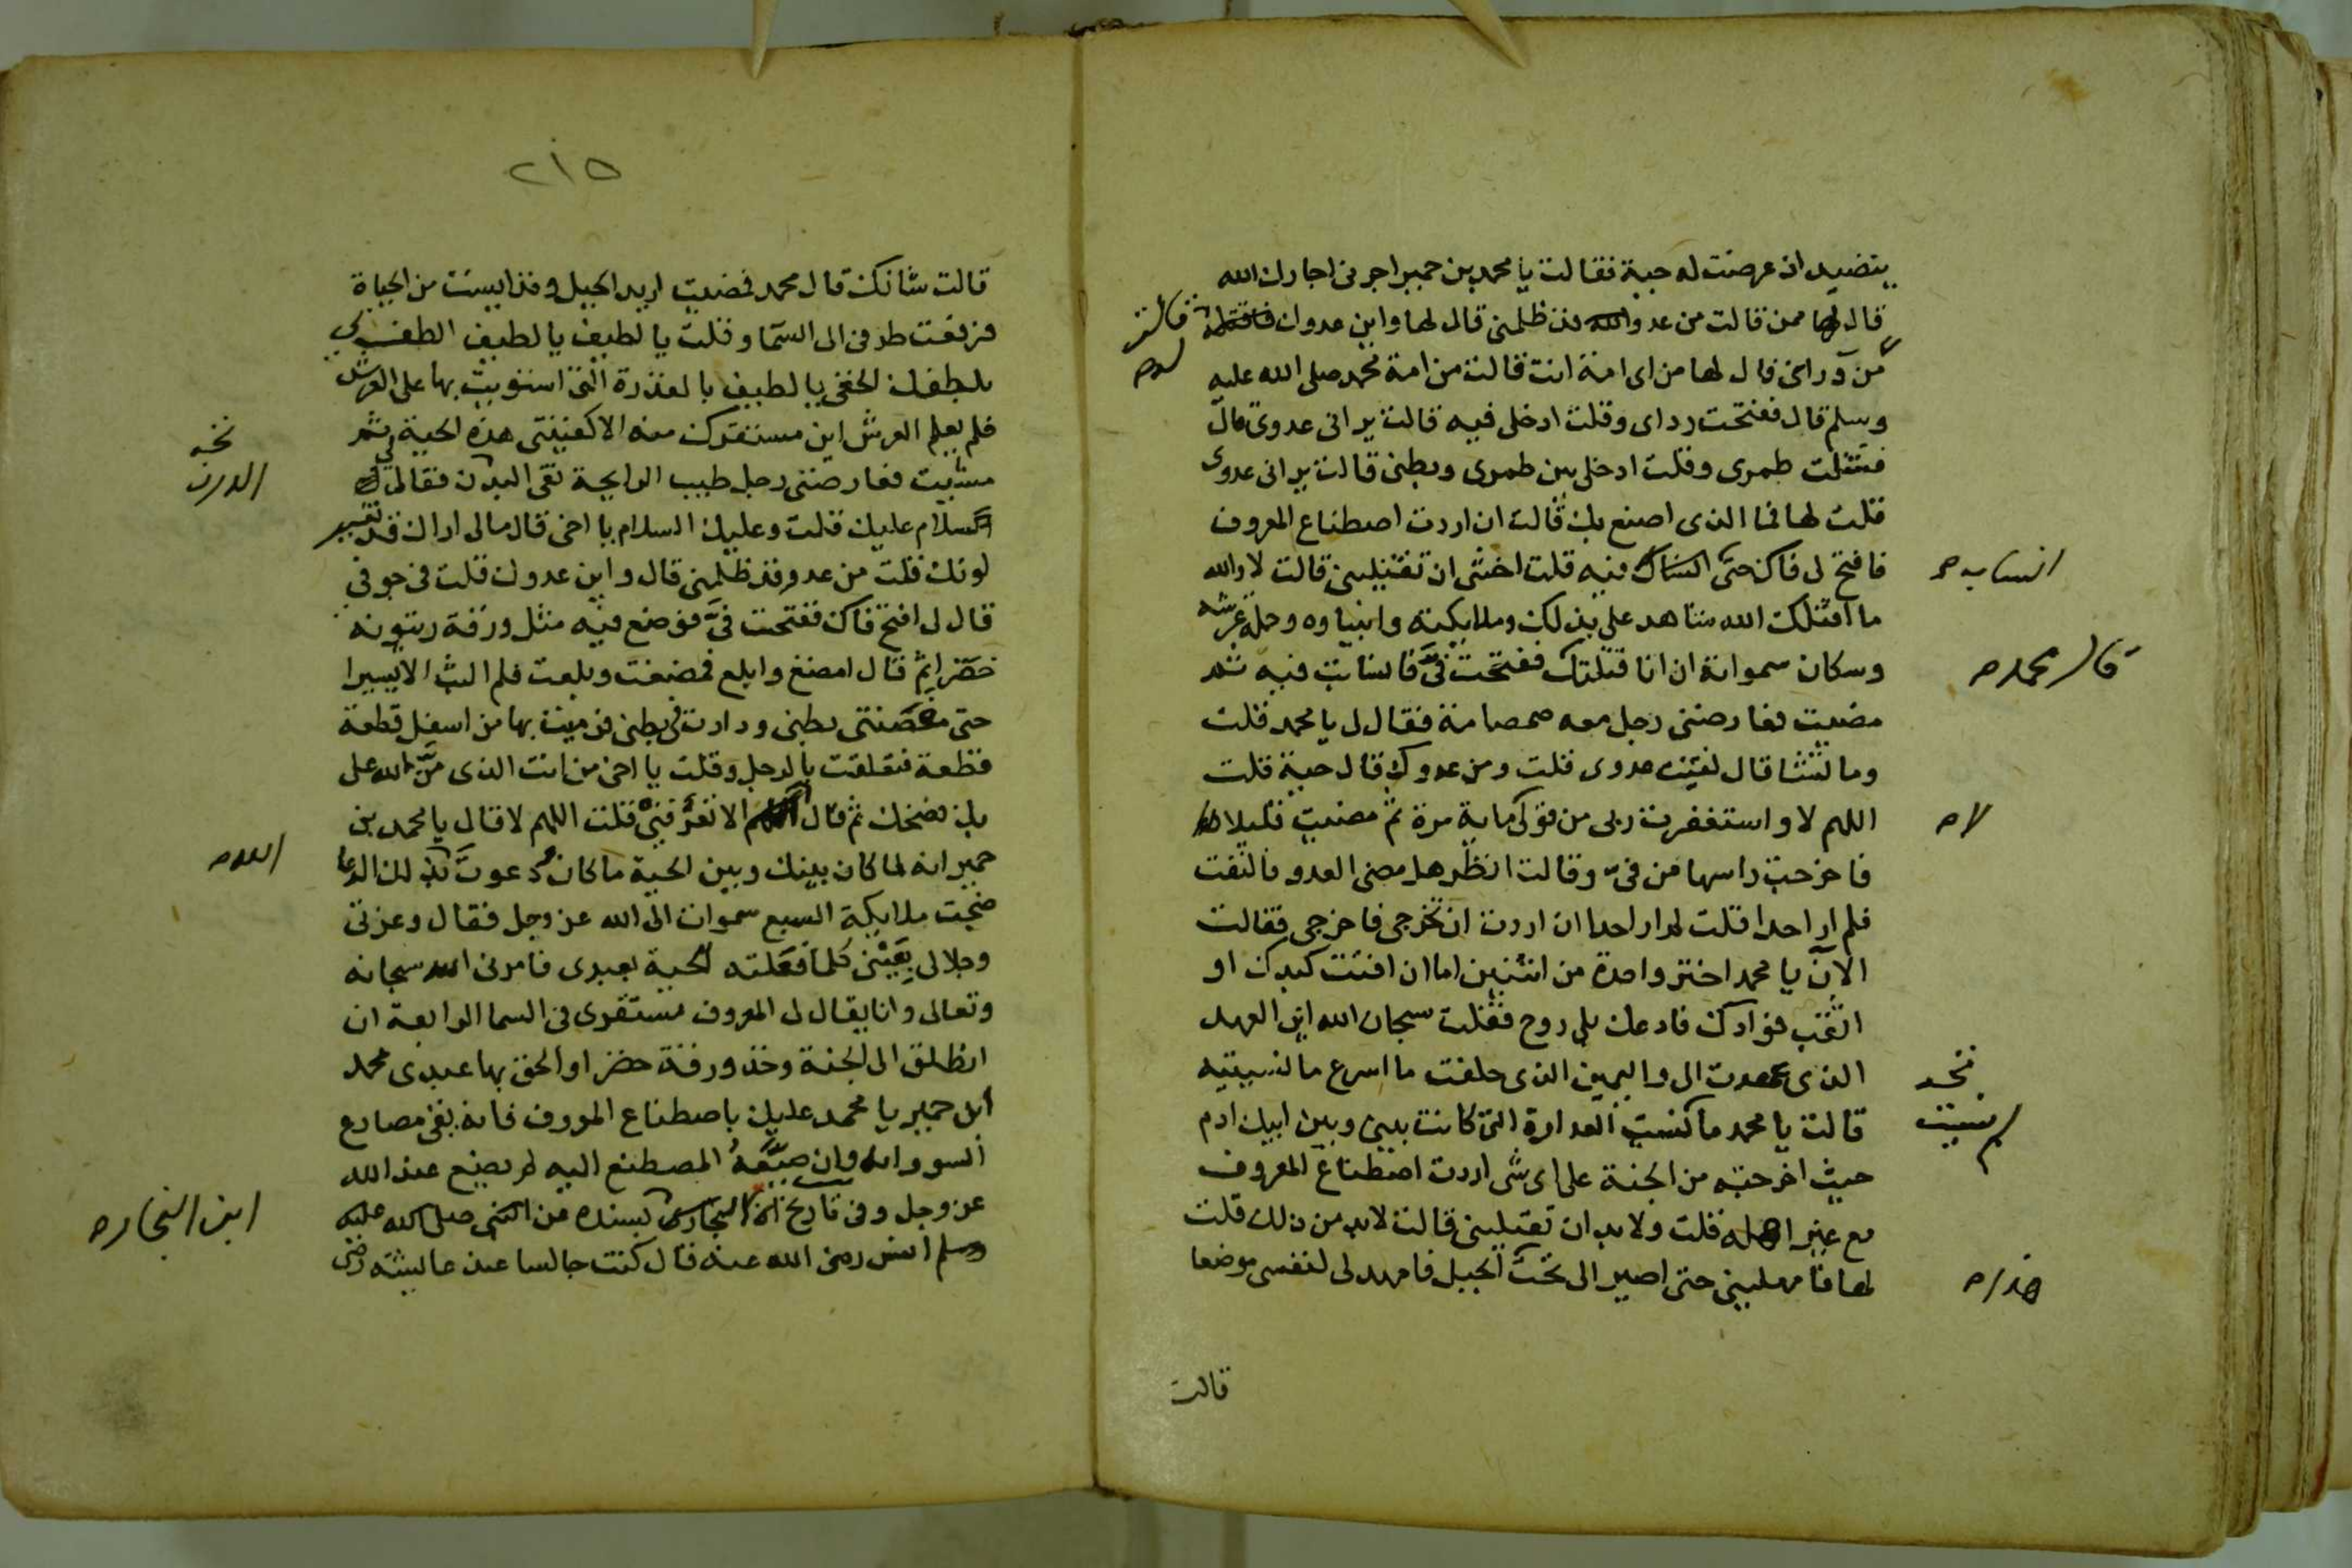 يتصيد اذ عرضت له حية فقالت يا محمد بن حمير اجرنى اجارك الله
قال لها ممن قالت من عدو قد ظلمنى قال لها واين عدوك
قالت
من ورائى قال لها من اى امة انت قالت من امة محمد صلى الله عليه
وسلم قال ففتحت رداى وقلت ادخلى فيه قالت يرانى عدوى قال
فشلت طمرى وقلت ادخلى بين طمرى وبطنى قالت يرانى عدوى
قلت لها فما الذى اصنع بك قالت ان اردت اصطناع المعروف
فافتح لى فاك حتى انساب فيه قلت اخشى ان تقتلينى قالت لا والله
انساب صح
ما اقتلك الله شاهد على بذلك وملايكته وانبياوه وحملة عرشه
وسكان سمواته ان انا قتلتك ففتحت فىّ فانسابت فيه ثم
قال محمد صح
مضيت فعارضنى رجل معه صمصامة فقال لى يا محمد قلت
وما تشا قال لقيت عدوى قلت ومن عدوك قال حية قلت
اللهم لا واستغفرت ربى من قولى ماية مرة ثم مضيت قليلا
لا صح
فاخرجت راسها من فىّ وقالت انظر هل مضى العدو فالتفت
فلم ار احدا قلت لم ار احدا ان اردت ان تخرجى فاخرجى فقالت
الآن يا محمد اختر واحدة من اثنتين اما ان افتت كبدك او
اثقب فوادك فادعك بلى روح فقلت سبحان الله اين العهد
الذى عهدت الى واليمين الذى حلفت ما اسرع ما نسيتيه
نخـه
قالت يا محمد ما نسيت العداوة التى كانت بينى وبين ابيك ادم
لم نسيت
حيث اخرجته من الجنة على اى شى اردت اصطناع المعروف
مع غير اهله قلت ولا بد ان تقتلينى قالت لا بد من ذلك قلت
لها فامهلينى حتى اصير الى تحت الجبل فامهد لى لنفسى موضعا
قالت
٢١٥
قالت شانك قال محمد فمضيت اريد الجبل وقد ايست من الحياة
فرفعت طرفى الى السما وقلت يا لطيف يا لطيف الطف بى
بلطفك الخفى يا لطيف بالقدرة التى استويت بها على العرش
فلم يعلم العرش اين مستقرك منه الا كفيتنى هذه الحية ثم
مشيت فعارضنى رجل طيب الرايحة نقى البدن فقال لى
نخـه
الدرن
السلام عليك قلت وعليك السلام يا اخى قال مالى اراك قد تغير
لونك قلت من عدو قد ظلمنى قال واين عدوك قلت فى جوفى
قال لى افتح فاك ففتحت فىّ فوضع فيه مثل ورقة زيتونه
خضرا ثم قال امضغ وابلع فمضغت وبلعت فلم البث الا يسيرا
حتى مغصتنى بطنى ودارت فى بطنى فرميت بها من اسفل قطعة
قطعة فتعلقت بالرجل وقلت يا اخى من انت الذى منّ الله على
بك فضحك ثم قال الا تعرفنى قلت اللهم لا قال يا محمد بن
حمير انه لما كان بينك وبين الحية ما كان ودعوت بذلك الدعا
ضجت ملايكة السبع سموات الى الله عز وجل فقال وعزتى
وجلالى بعينى كلما فعلته الحية بعبدى فامرنى الله سبحانه
وتعالى وانا يقال لى المعروف مستقرى فى السما الرابعة ان
انطلق الى الجنة وخذ ورقة خضرا والحق بها عبدى محمد
ابن حمير يا محمد عليك باصطناع المعروف فانه يقى مصارع
السوء وانه وان ضيعه المصطنع اليه لم يضيع عند الله
عز وجل وفى تاريخ ابن النجار بسنده
ابن النجار صح
انس رضى الله عنه قال كنت جالسا عند عايشة رضى